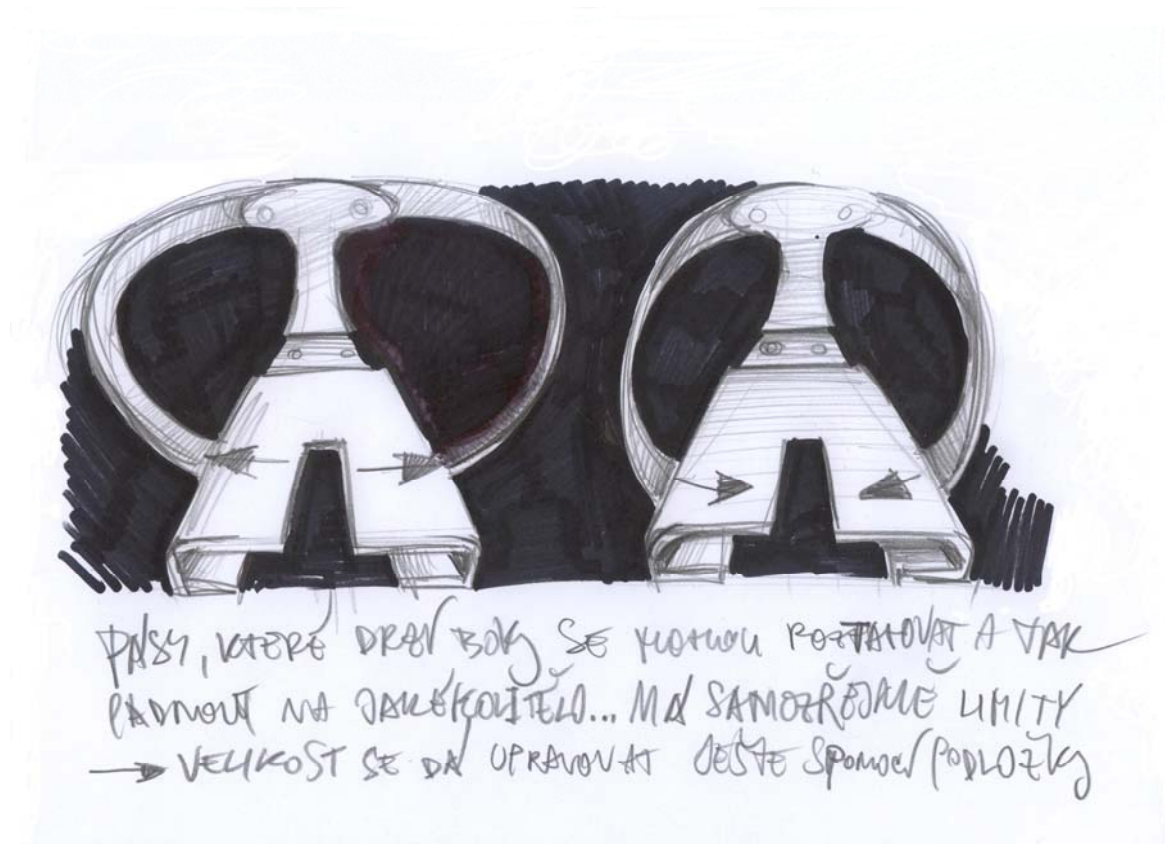 PÁSY, KTERÉ DRŽÍ BOKY SE MOHOU ROZTAHOVAT A TAK
PADNOUT NA JAKÉKOLI TĚLO... MÁ SAMOZŘEJMĚ LIMITY
→ VELIKOST SE DÁ UPRAVOVAT JEŠTĚ S POMOCÍ PODLOŽKY